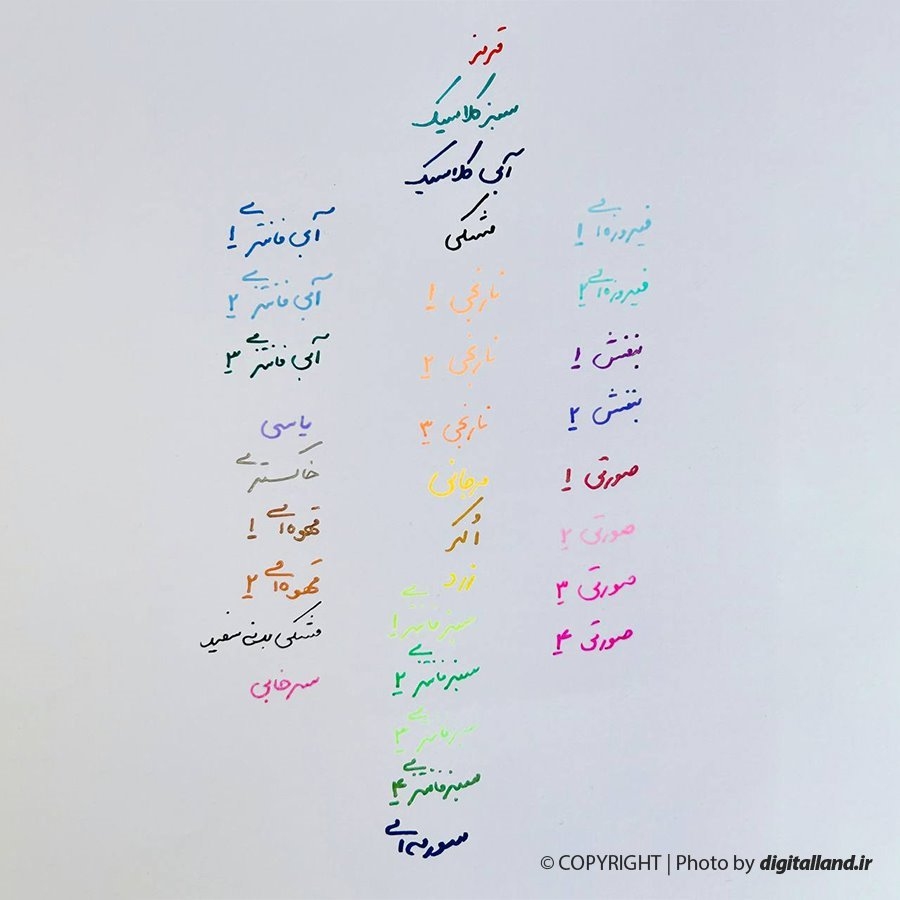 قرمز
سبز کلاسیک
آبی کلاسیک
مشکی
نارنجی ۱
نارنجی ۲
نارنجی ۳
مرجانی
اُکر
زرد
سبز فانتزی ۱
سبز فانتزی ۲
سبز فانتزی ۳
سبز فانتزی ۴
سورمه‌ای
فیروزه‌ای ۱
فیروزه‌ای ۲
بنفش ۱
بنفش ۲
صورتی ۱
صورتی ۲
صورتی ۳
صورتی ۴
آبی فانتزی ۱
آبی فانتزی ۲
آبی فانتزی ۳
یاسی
خاکستری
قهوه‌ای ۱
قهوه‌ای ۲
مشکی بدنه سفید
سرخابی
© COPYRIGHT | Photo by digitalland.ir